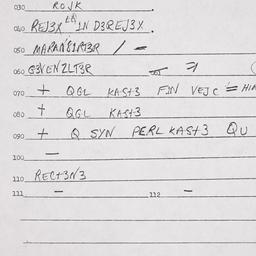 030 ROJK
040 REJ3X 1N D3REJ3X.
050 MARAN'G1RT3R / -
060 G3VENZLT3R
070 + QGL KAST3 FIN VEJC = HIN
080 + QGL KAST3
090 + Q SYN PERL KAST3 QU
100 —
110 RECT3N3
111 — 112 —